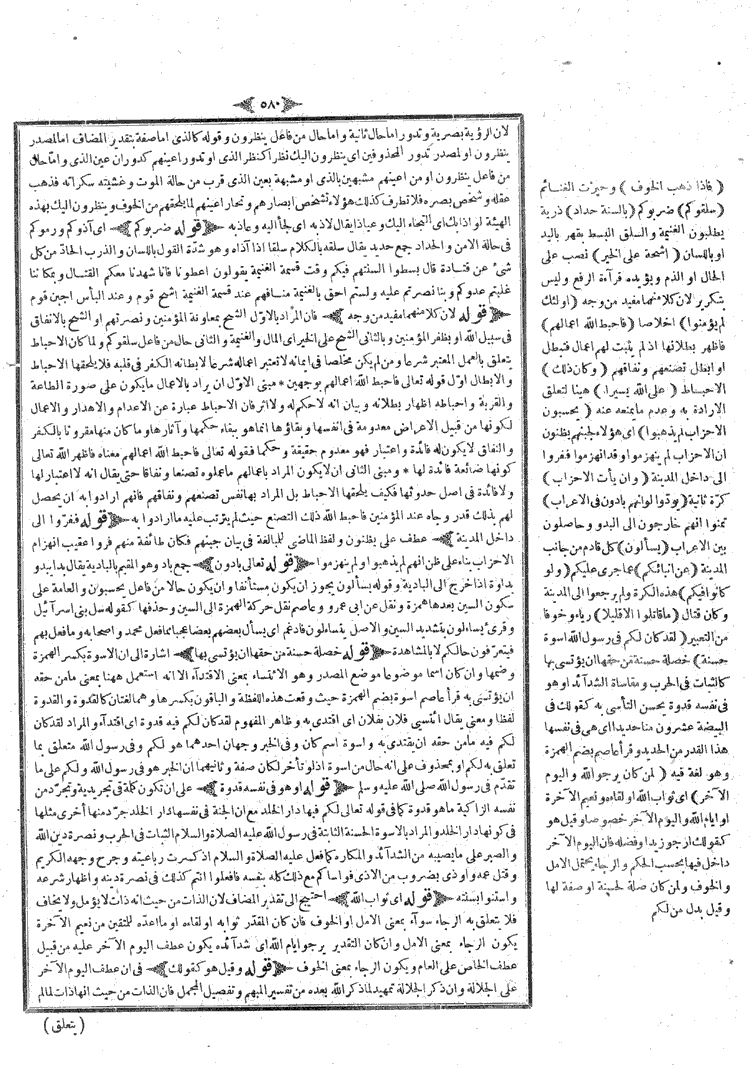 ﴿ ٥٨٠ ﴾
لان الرؤية بصرية وتدور اما حال ثانية واما حال من فاعل ينظرون وقوله كالذى اما صفة بتقدير المضاف اما لمصدر
ينظرون او لمصدر تدور المحذوفين اى ينظرون اليك نظرا كنظر الذى او تدور اعينهم كدوران عين الذى واما حال
من فاعل ينظرون او من اعينهم مشبهين بالذى او مشبهة بعين الذى قرب من حالة الموت وغشيته سكراته فذهب
عقله وشخص بصره فلا تطرف كذلك هؤلاء تشخص ابصارهم وتحار اعينهم لما يلحقهم من الخوف وينظرون اليك بهذه
الهيئة لواذا بك اى التجاء اليك وعياذا يقال لاذ به اى لجأ اليه وعاذ به ﴿ قوله ضربوكم ﴾ اى آذوكم ورموكم
فى حالة الامن والحداد جمع حديد يقال سلقه بالكلام سلقا اذا آذاه وهو شدة القول باللسان والذرب الحاد من كل
شئ عن قتادة قال بسطوا السنتهم فيكم وقت قسمة الغنيمة يقولون اعطونا فانا شهدنا معكم القتال وبمكاننا
غلبتم عدوكم وبنا نصرتم عليه ولستم احق بالغنيمة منا فهم عند قسمة الغنيمة اشح قوم وعند البأس اجبن قوم
﴿ قوله لان كلا منهما مقيد من وجه ﴾ فان المراد بالاول الشحيح بمعاونة المؤمنين ونصرتهم او الشحيح بالانفاق
فى سبيل الله او بظفر المؤمنين وبالثانى الشحيح على الخير اى المال والغنيمة والثانى حال من فاعل سلقوكم ولما كان الاحباط
يتعلق بالعمل المعتبر شرعا ومن لم يكن مخلصا فى ايمانه لا تعتبر اعماله شرعا لابطانه الكفر فى قلبه فلا يلحقها الاحباط
والابطال اول قوله تعالى فاحبط الله اعمالهم بوجهين * مبنى الاول ان يراد بالاعمال ما يكون على صورة الطاعة
والقربة واحباطه اظهار بطلانه وبيان انه لا حكم له ولا اثر فان الاحباط عبارة عن الاعدام والاهدار والاعمال
لكونها من قبيل الاعراض معدومة فى انفسها وبقاؤها انما هو ببقاء حكمها وآثارها وما كان منها مقرونا بالكفر
والنفاق لا يكون له فائدة واعتبار فهو معدوم حقيقة وحكما فقوله تعالى فاحبط الله اعمالهم معناه فاظهر الله تعالى
كونها ضائعة فائدة لها * ومبنى الثانى ان لا يكون المراد باعمالهم ما عملوه تصنعا ونفاقا حتى يقال انه لا اعتبار لها
ولا فائدة فى اصل حدوثها فكيف يلحقها الاحباط بل المراد بها نفس تصنعهم ونفاقهم فانهم ارادوا به ان يحصل
لهم بذلك قدر وجاه عند المؤمنين فاحبط الله ذلك التصنع حيث لم يترتب عليه ما ارادوا به ﴿ قوله ففروا الى
داخل المدينة ﴾ عطف على يظنون ولفظ الماضى للمبالغة فى بيان جبنهم فكان طائفة منهم فروا عقيب انهزام
الاحزاب بناء على ظن انهم لم يذهبوا او لم ينهزموا ﴿ قوله تعالى بادون ﴾ جمع باد وهو المقيم بالبادية يقال بدا يبدو
بداوة اذا خرج الى البادية وقوله يسألون يجوز ان يكون مستأنفا وان يكون حالا من فاعل يحسبون والعامة على
سكون السين بعدها همزة ونقل عن ابى عمرو وعاصم نقل حركة الهمزة الى السين وحذفها كقوله سل بنى اسرآئيل
وقرئ يساءلون بتشديد السين والاصل يتساءلون فادغم اى يسأل بعضهم بعضا عجبا ما فعل محمد واصحابه وما فعل بهم
فيتعرفون حالكم لا بالمشاهدة ﴿ قوله خصلة حسنة من حقها ان يؤتسى بها ﴾ اشارة الى ان الاسوة بكسر الهمزة
وضمها وان كان اسما موضوعا موضع المصدر وهو الائتساء بمعنى الاقتدآء الا انه استعمل ههنا بمعنى ما من حقه
ان يؤتسى به قرأ عاصم اسوة بضم الهمزة حيث وقعت هذه اللفظة والباقون بكسرها وهما لغتان كالقدوة والقدوة
لفظا ومعنى يقال ائتسى فلان بفلان اى اقتدى به وظاهر المفهوم لقد كان لكم فيه قدوة اى اقتدآء والمراد لقد كان
لكم فيه ما من حقه ان يقتدى به واسوة اسم كان وفى الخبر وجهان احدهما هو لكم وفى رسول الله متعلق بما
تعلق به لكم او بمحذوف على انه حال من اسوة اذ لو تأخر لكان صفة وثانيهما ان الخبر هو فى رسول الله ولكم على ما
تقدم فى رسول الله صلى الله عليه وسلم ﴿ قوله او هو فى نفسه قدوة ﴾ على ان تكون كلة فى تجريدية وتجرد من
نفسه الزاكية ما هو قدوة كما فى قوله تعالى لكم فيها دار الخلد مع ان الجنة فى نفسها دار الخلد جرد منها اخرى مثلها
فى كونها دار الخلد والمراد بالاسوة الحسنة الثابتة فى رسول الله عليه الصلاة والسلام الثبات فى الحرب ونصرة دين الله
والصبر على ما يصيبه من الشدآئد والمكاره كما فعل عليه الصلاة والسلام اذ كسرت رباعيته وجرح وجهه الكريم
وقتل عمه واوذى بضروب من الاذى فواساكم مع ذلك كله بنفسه فافعلوا انتم كذلك فى نصرة دينه واظهار شرعه
واستنوا بسنته ﴿ قوله اى ثواب الله ﴾ احتيج الى تقدير المضاف لان الذات من حيث انه ذات لا يؤمل ولا يخاف
فلا يتعلق به الرجاء سوآء بمعنى الامل او الخوف فان كان المقدر ثوابه او لقاءه او ما اعده للمتقين من نعيم الآخرة
يكون الرجاء بمعنى الامل وان كان التقدير يرجو ايام الله اى شدآئده يكون عطف اليوم الآخر عليه من قبيل
عطف الخاص على العام ويكون الرجاء بمعنى الخوف ﴿ قوله وقيل هو كقولك ﴾ فى ان عطف اليوم الآخر
على الجلالة وان ذكر الجلالة تمهيد لما ذكر الله بعده من تفسير المبهم وتفصيل المجمل فان الذات من حيث انها ذات لما لم
( يتعلق )
( فاذا ذهب الخوف ) وحيزت الغنائم
( سلقوكم ) ضربوكم ( بالسنة حداد ) ذربة
يطلبون الغنيمة والسلق البسط بقهر باليد
او باللسان ( اشحة على الخير ) نصب على
الحال او الذم ويؤيده قرآءة الرفع وليس
بتكرير لان كلا منهما مقيد من وجه ( اولئك
لم يؤمنوا ) اخلاصا ( فاحبط الله اعمالهم )
فاظهر بطلانها اذ لم يثبت لهم اعمال فتبطل
او ابطل تصنعهم ونفاقهم ( وكان ذلك )
الاحباط ( على الله يسيرا ) هينا لتعلق
الارادة به وعدم ما يمنعه عنه ( يحسبون
الاحزاب لم يذهبوا ) اى هؤلاء لجبنهم يظنون
ان الاحزاب لم ينهزموا وقد انهزموا ففروا
الى داخل المدينة ( وان يأت الاحزاب )
كرة ثانية ( يودوا لو انهم بادون فى الاعراب )
تمنوا انهم خارجون الى البدو وحاصلون
بين الاعراب ( يسألون ) كل قادم من جانب
المدينة ( عن انبائكم ) عما جرى عليكم ( ولو
كانوا فيكم ) هذه الكرة ولم يرجعوا الى المدينة
وكان قتال ( ما قاتلوا الا قليلا ) رياء وخوفا
من التعيير ( لقد كان لكم فى رسول الله اسوة
حسنة ) خصلة حسنة من حقها ان يؤتسى بها
كالثبات فى الحرب ومقاساة الشدآئد او هو
فى نفسه قدوة يحسن التأسى به كقولك فى
البيضة عشرون منا حديدا اى هى فى نفسها
هذا القدر من الحديد وقرأ عاصم بضم الهمزة
وهو لغة فيه ( لمن كان يرجو الله واليوم
الآخر ) اى ثواب الله او لقاءه ونعيم الآخرة
او ايام الله واليوم الآخر خصوصا وقيل هو
كقولك ارجو زيدا وفضله فان اليوم الآخر
داخل فيها بحسب الحكم والرجاء يحتمل الامل
والخوف ولمن كان صلة لحسنة او صفة لها
وقيل بدل من لكم